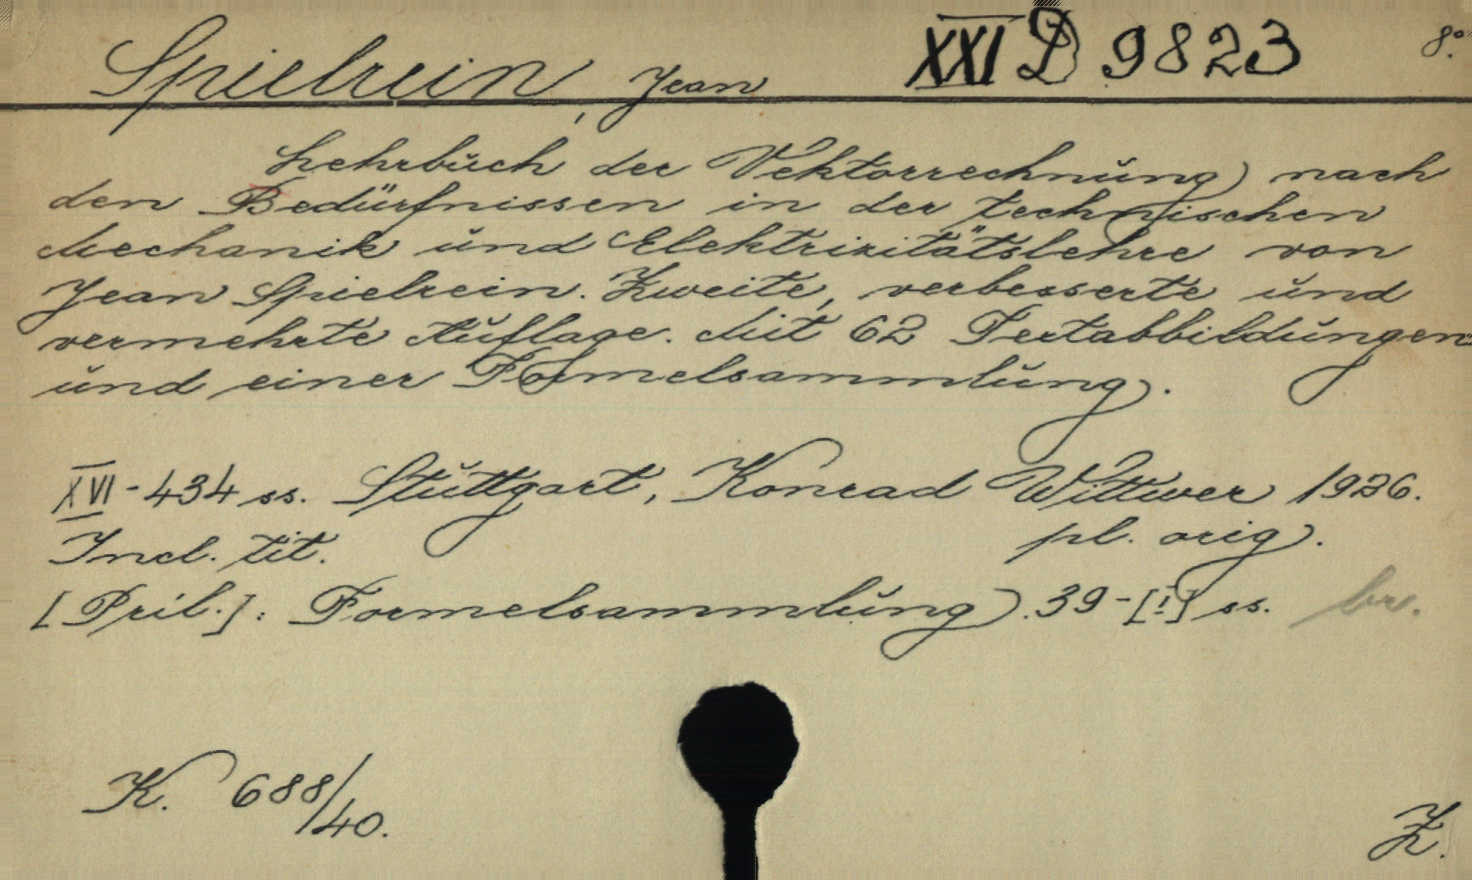 Spielrein, Jean XXI D 9823 8°.
Lehrbuch der Vektorrechnung nach
den Bedürfnissen in der technischen
Mechanik und Elektrizitätslehre von
Jean Spielrein. Zweite, verbesserte und
vermehrte Auflage. Mit 62 Textabbildungen
und einer Formelsammlung.
XVI-434 ss. Stuttgart, Konrad Wittwer 1926.
Incl. tit. pl. orig.
[Pril.]: Formelsammlung. 39-[1] ss. br.
K. 688/40.
Z.